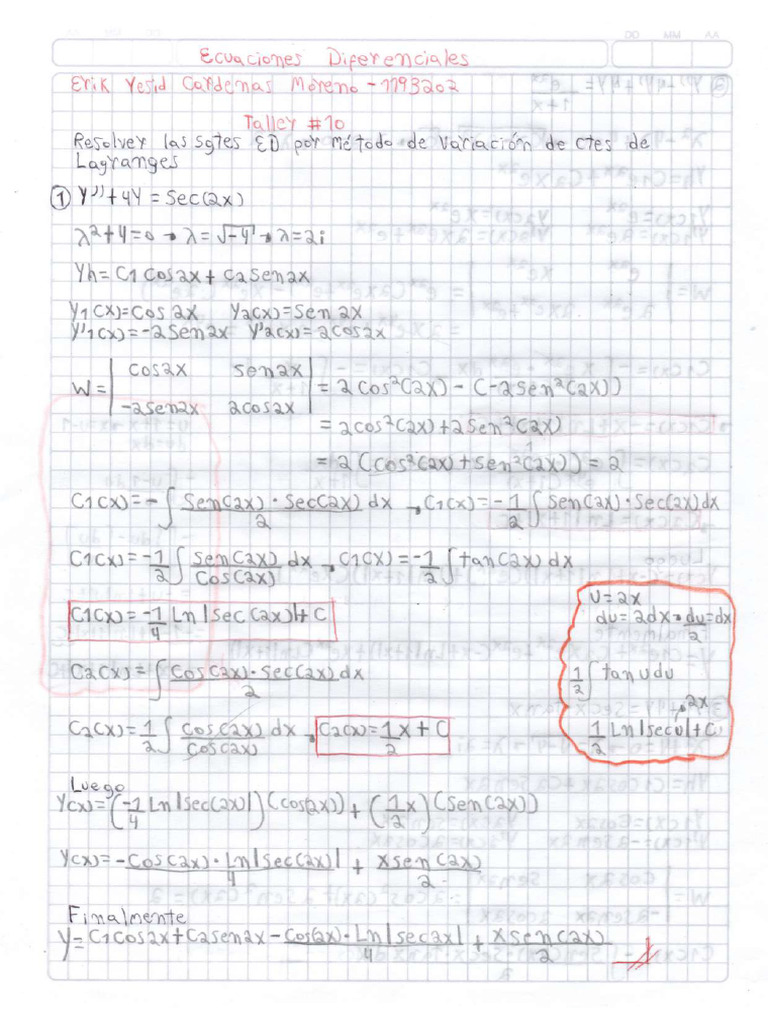 DD MM AA
Ecuaciones Diferenciales
Erik Yesid Cardenas Moreno - 1193202
Taller #10
Resolver las sgtes ED por método de variación de ctes de
Lagranges
① y'' + 4y = Sec(2x)
λ² + 4 = 0 → λ = √-4 → λ = 2i
Yh = C1 Cos2x + C2 Sen2x
Y1(x) = Cos 2x Y2(x) = Sen 2x
Y'1(x) = -2 Sen2x Y'2(x) = 2cos2x
W = | cos2x sen2x | = 2 Cos²(2x) - (-2 Sen²(2x))
| -2sen2x 2cos2x |
= 2cos²(2x) + 2 Sen²(2x)
= 2 (cos²(2x) + sen²(2x)) = 2
1
C1(x) = -∫ Sen(2x) · Sec(2x)/2 dx → C1(x) = -1/2 ∫ Sen(2x) · Sec(2x) dx
C1(x) = -1/2 ∫ Sen(2x)/Cos(2x) dx → C1(x) = -1/2 ∫ tan(2x) dx
C1(x) = -1/4 Ln |sec(2x)| + C
U = 2x
du = 2dx → du/2 = dx
1/2 ∫ tan u du
2x
1/2 Ln |sec u| + C
C2(x) = ∫ Cos(2x) · Sec(2x)/2 dx
C2(x) = 1/2 ∫ Cos(2x)/Cos(2x) dx → C2(x) = 1/2 x + C
Luego
Y(x) = (-1/4 Ln |sec(2x)|) (cos(2x)) + (1/2 x) (Sen(2x))
Y(x) = -Cos(2x) · Ln |sec(2x)|/4 + x sen(2x)/2
Finalmente
Y = C1 Cos2x + C2 sen2x - Cos(2x) · Ln |sec2x|/4 + x sen(2x)/2